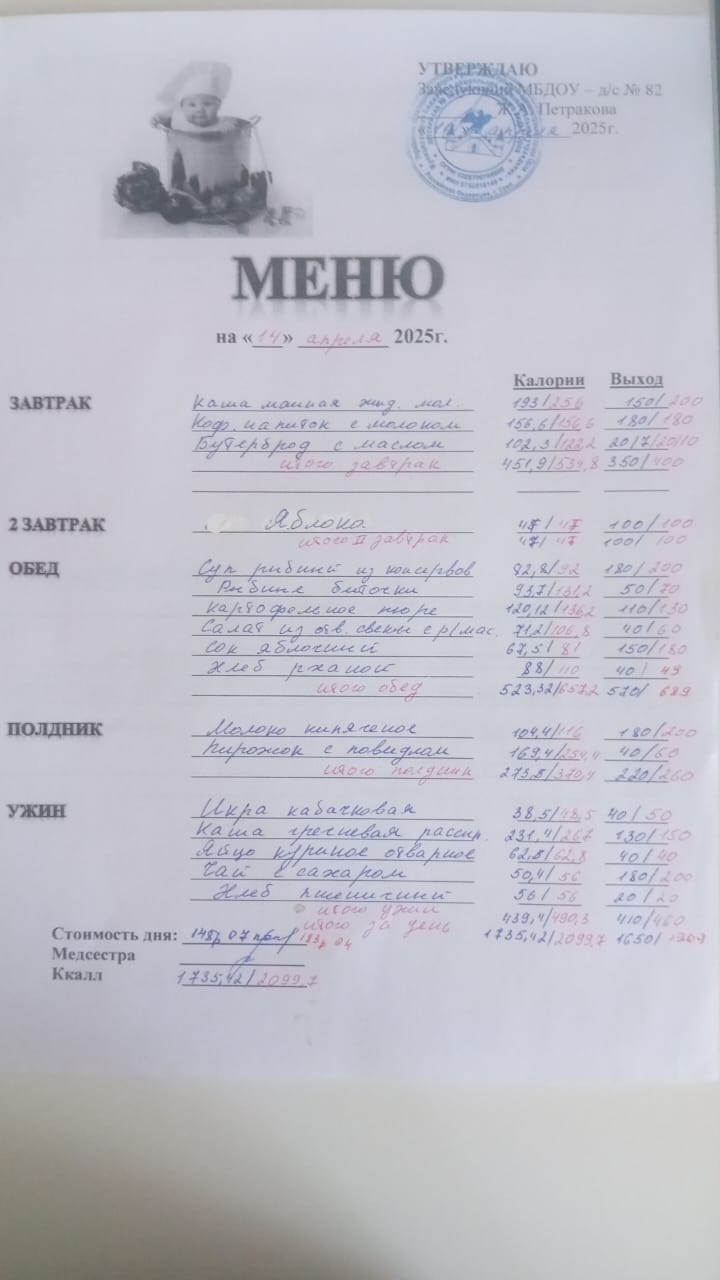 УТВЕРЖДАЮ
Заведующий МБДОУ – д/с № 82
Петракова
апреля 2025г.
МЕНЮ
на «14» апреля 2025г.
Калории Выход
ЗАВТРАК Каша манная жид. мол. 193/256 150/200
Коф. напиток с молоком 156,6/156,6 180/180
Бутерброд с маслом 102,3/122,2 20/7/20/10
итого завтрак 451,9/534,8 350/400
2 ЗАВТРАК Яблоко 47/47 100/100
итого II завтрак 47/47 100/100
ОБЕД Суп рыбный из консервов 82,8/92 180/200
Рыбные биточки 93,7/131,2 50/70
Картофельное пюре 120,12/136,2 110/130
Салат из отв. свеклы с р/мас. 71,2/106,8 40/60
Сок яблочный 67,5/81 150/180
Хлеб ржаной 88/110 40/49
итого обед 523,32/657,2 570/689
ПОЛДНИК Молоко кипяченое 104,4/116 180/200
Пирожок с повидлом 169,4/254,4 40/60
итого полдник 273,8/370,4 220/260
УЖИН Икра кабачковая 38,5/48,5 40/50
Каша гречневая рассып. 231,4/267 130/150
Яйцо куриное отварное 62,8/62,8 40/40
Чай с сахаром 50,4/56 180/200
Хлеб пшеничный 56/56 20/20
итого ужин 439,4/490,3 410/460
итого за день 1735,42/2099,7 1650/
Стоимость дня: 148р 07 183р 04
Медсестра
Ккалл 1735,42/2099,7